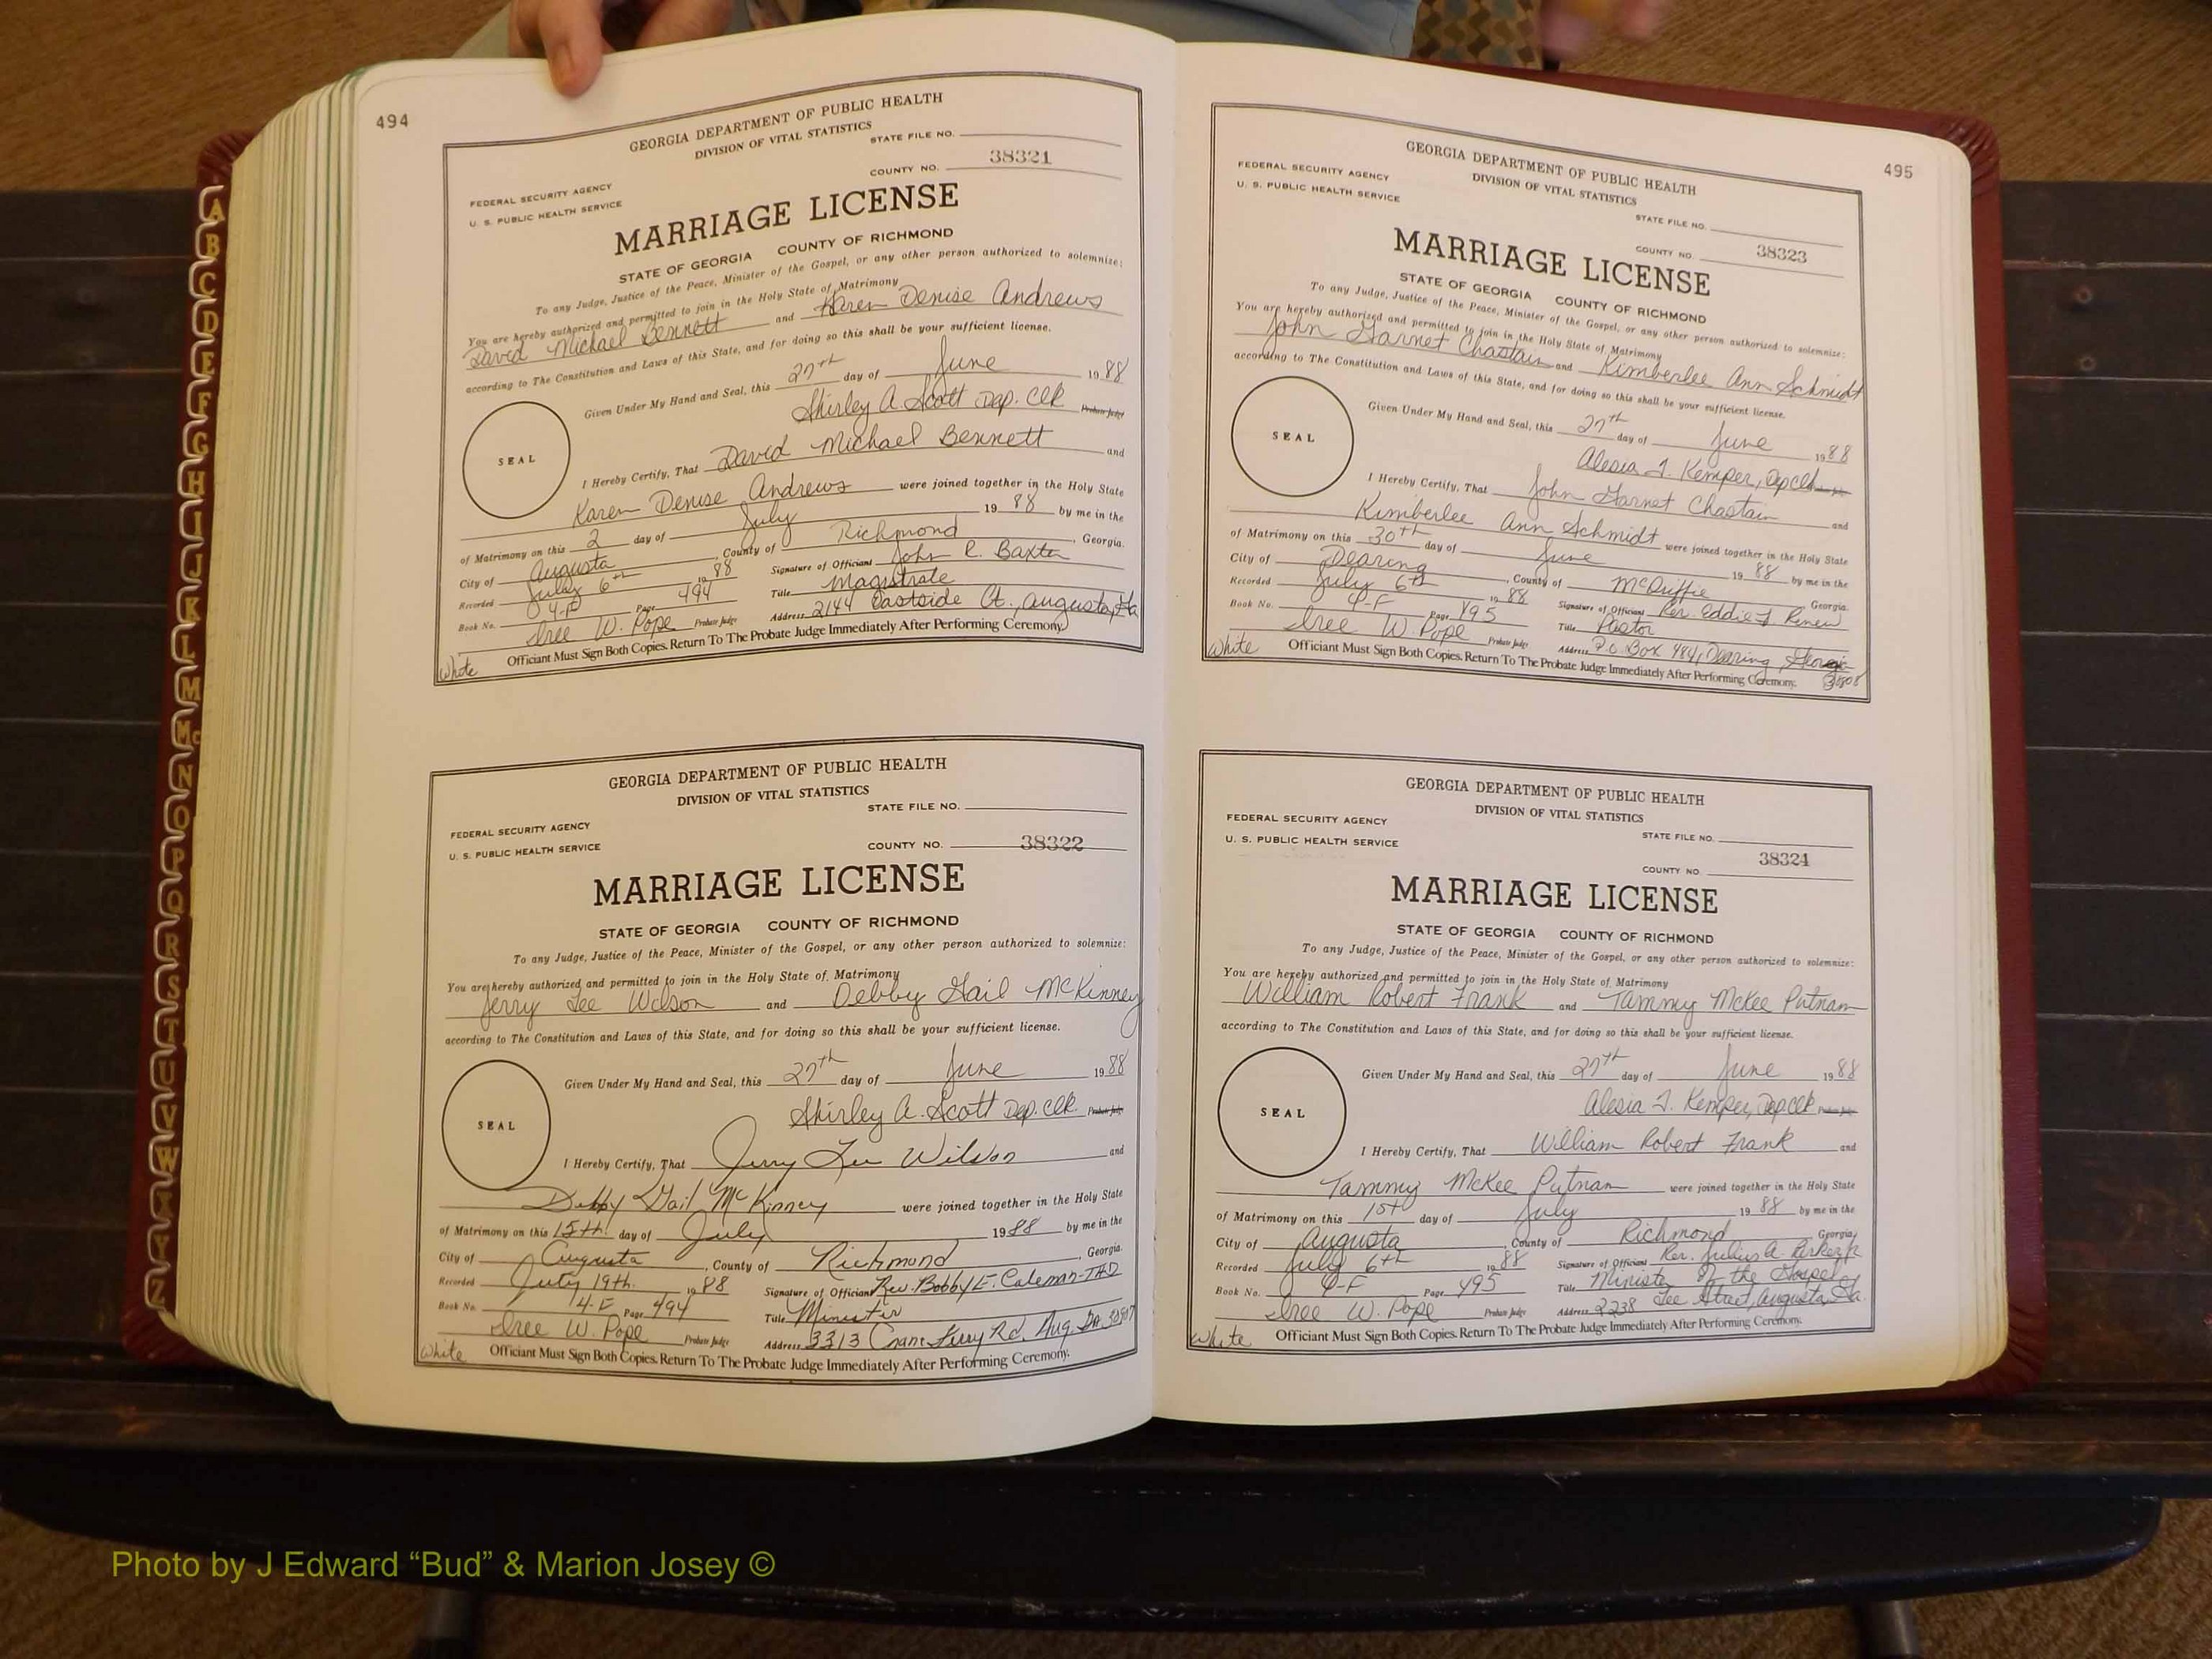 494
GEORGIA DEPARTMENT OF PUBLIC HEALTH
DIVISION OF VITAL STATISTICS
STATE FILE NO.
FEDERAL SECURITY AGENCY
U. S. PUBLIC HEALTH SERVICE
COUNTY NO. 38321
MARRIAGE LICENSE
STATE OF GEORGIA COUNTY OF RICHMOND
To any Judge, Justice of the Peace, Minister of the Gospel, or any other person authorized to solemnize:
You are hereby authorized and permitted to join in the Holy State of Matrimony
David Michael Bennett and Karen Denise Andrews
according to The Constitution and Laws of this State, and for doing so this shall be your sufficient license.
Given Under My Hand and Seal, this 27th day of June 1988
Shirley A Scott Dep. Clk Probate Judge
SEAL
I Hereby Certify, That David Michael Bennett and
Karen Denise Andrews were joined together in the Holy State
of Matrimony on this 2 day of July 19 88 by me in the
City of Augusta, County of Richmond, Georgia.
Recorded July 6th 19 88 Signature of Officiant John R. Baxter
Book No. 4-F Page 494 Title Magistrate
Iree W. Pope Probate Judge Address 2144 Eastside Ct., Augusta, Ga
White Officiant Must Sign Both Copies. Return To The Probate Judge Immediately After Performing Ceremony.
GEORGIA DEPARTMENT OF PUBLIC HEALTH
DIVISION OF VITAL STATISTICS
STATE FILE NO.
FEDERAL SECURITY AGENCY
U. S. PUBLIC HEALTH SERVICE
COUNTY NO. 38322
MARRIAGE LICENSE
STATE OF GEORGIA COUNTY OF RICHMOND
To any Judge, Justice of the Peace, Minister of the Gospel, or any other person authorized to solemnize:
You are hereby authorized and permitted to join in the Holy State of Matrimony
Jerry Lee Wilson and Debby Gail McKinney
according to The Constitution and Laws of this State, and for doing so this shall be your sufficient license.
Given Under My Hand and Seal, this 27th day of June 1988
Shirley A. Scott Dep. Clk. Probate Judge
SEAL
I Hereby Certify, That Jerry Lee Wilson and
Debby Gail McKinney were joined together in the Holy State
of Matrimony on this 15th day of July 1988 by me in the
City of Augusta, County of Richmond, Georgia.
Recorded July 19th 19 88 Signature of Officiant Rev. Bobby E. Coleman-THD
Book No. 4-F Page 494 Title Minister
Iree W. Pope Probate Judge Address 3313 Crane Ferry Rd. Aug. Ga 30907
White Officiant Must Sign Both Copies. Return To The Probate Judge Immediately After Performing Ceremony.
495
GEORGIA DEPARTMENT OF PUBLIC HEALTH
DIVISION OF VITAL STATISTICS
FEDERAL SECURITY AGENCY
U. S. PUBLIC HEALTH SERVICE
STATE FILE NO.
COUNTY NO. 38323
MARRIAGE LICENSE
STATE OF GEORGIA COUNTY OF RICHMOND
To any Judge, Justice of the Peace, Minister of the Gospel, or any other person authorized to solemnize:
You are hereby authorized and permitted to join in the Holy State of Matrimony
John Garnet Chastain and Kimberlee Ann Schmidt
according to The Constitution and Laws of this State, and for doing so this shall be your sufficient license.
Given Under My Hand and Seal, this 27th day of June 1988
Alesia J. Kemper, Dep Clk
SEAL
I Hereby Certify, That John Garnet Chastain and
Kimberlee Ann Schmidt were joined together in the Holy State
of Matrimony on this 30th day of June 19 88 by me in the
City of Dearing, County of McDuffie Georgia.
Recorded July 6th 19 88 Signature of Officiant Rev. Eddie J Renew
Book No. 4-F Page 495 Title Pastor
Iree W. Pope Probate Judge Address P.O. Box 484, Dearing, Georgia 30808
White Officiant Must Sign Both Copies. Return To The Probate Judge Immediately After Performing Ceremony.
GEORGIA DEPARTMENT OF PUBLIC HEALTH
DIVISION OF VITAL STATISTICS
FEDERAL SECURITY AGENCY
U. S. PUBLIC HEALTH SERVICE
STATE FILE NO.
COUNTY NO. 38324
MARRIAGE LICENSE
STATE OF GEORGIA COUNTY OF RICHMOND
To any Judge, Justice of the Peace, Minister of the Gospel, or any other person authorized to solemnize:
You are hereby authorized and permitted to join in the Holy State of Matrimony
William Robert Frank and Tammy McKee Putnam
according to The Constitution and Laws of this State, and for doing so this shall be your sufficient license.
Given Under My Hand and Seal, this 27th day of June 1988
Alesia J. Kemper, Dep Clk Probate Judge
SEAL
I Hereby Certify, That William Robert Frank and
Tammy McKee Putnam were joined together in the Holy State
of Matrimony on this 1st day of July 19 88 by me in the
City of Augusta, County of Richmond Georgia.
Recorded July 6th 19 88 Signature of Officiant Rev. Julius A.
Book No. 4-F Page 495 Title Minister of the Gospel
Iree W. Pope Probate Judge Address 2238 Lee Street, Augusta, Ga.
White Officiant Must Sign Both Copies. Return To The Probate Judge Immediately After Performing Ceremony.
A
B
C
D
E
F
G
H
I
J
K
L
M
Mc
N
O
P
Q
R
S
T
U
V
W
X
Y
Z
Photo by J Edward “Bud” & Marion Josey ©